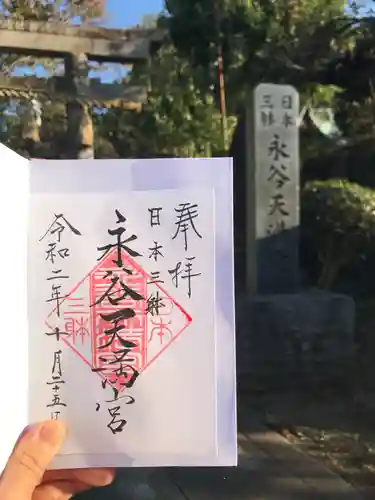 奉拝
日本三躰
永谷天満宮
令和二年十月二十五日
日本
三躰
永谷天満